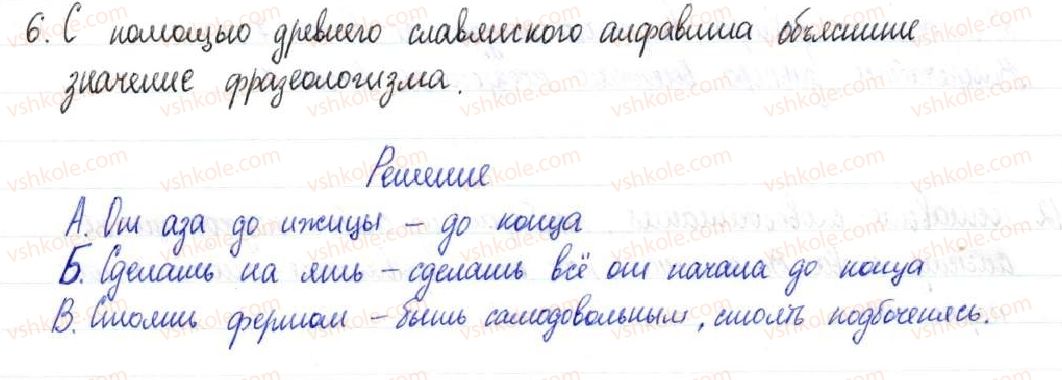 6. С помощью древнего славянского алфавита объясните
значение фразеологизма.
Решение
А. От аза до ижицы – до конца
Б. Сделать на ять – сделать всё от начала до конца
В. Стоять фертом – быть самодовольным, стоять подбоченясь.
vshkole.com